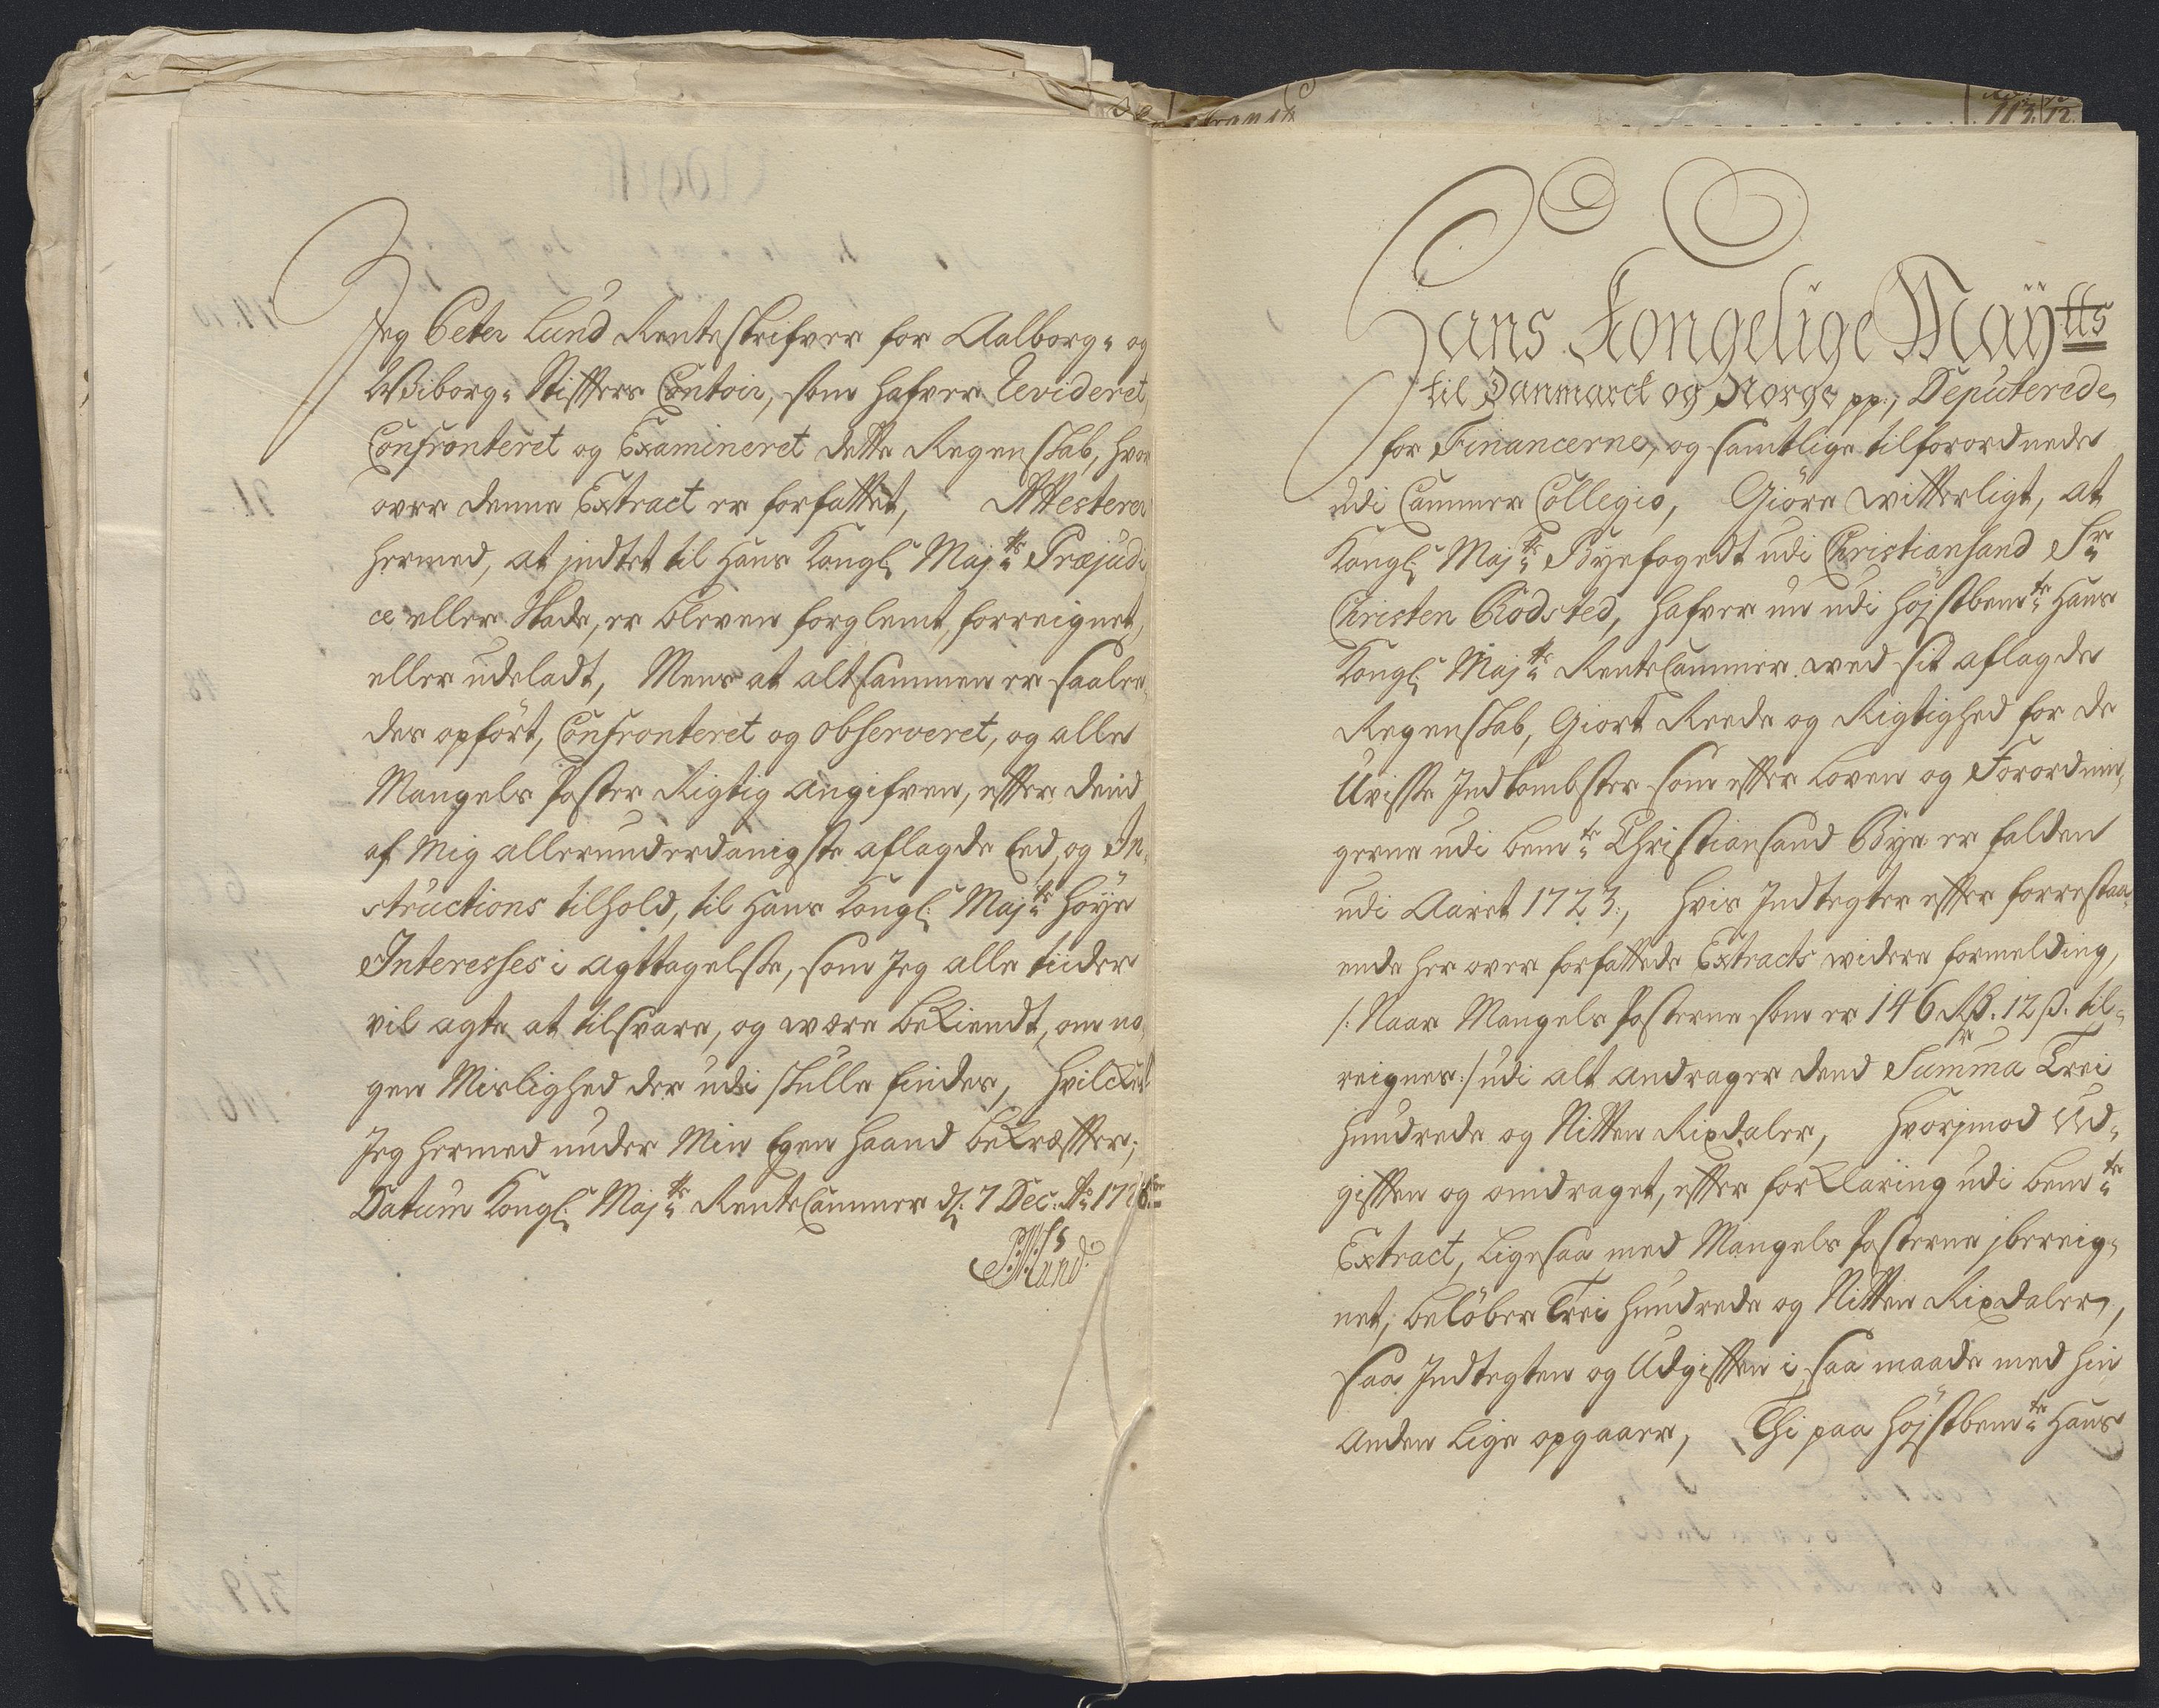 Jeg Peter Lund Renteskrifver for Aalborg- og
Wiborg- Stifters Contoir, som hafver Revideret,
Confronteret og Examineret dette Regenskab, hvor
over denne Extract er forfattet, Attesterer
hermed, at jndtet til Hans Kongl: Maj:ts Præjudi
ce eller Skade, er bleven forglemt, forreignet,
eller udeladt, Mens at altsammen er saale-
des opført, Confronteret og observeret, og alle
Mangels Poster Rigtig angifven, efter dend
af Mig allerunderdanigste aflagde Eed, og In-
structions tilhold, til Hans Kongl: Maj:ts Høye
Interesses i agttagelse, som Jeg alle tiider
vil agte at tilsvare, og være bekiendt, om no-
gen Mislighed der udi skulle findes, Hvilcket
Jeg hermed under Min Egen Haand bekræfter;
Datum Kongl: Maj:ts RenteCammer d: 7 Dec: Ao
Lund
Hans Kongelige Maytts
til Danmarck og Norge pp., Deputerede
for Financerne, og samtlige tilforordnede
udi Cammer Collegio, Giøre witterligt, at
Kongl: Maj:ts Byefogedt udi Christiansand Sr
Christen Bodsted, hafver nu udi højstbem:te Hans
Kongl: Maj:ts RenteCammer med sit aflagde
Regenskab, Giort Reede og Rigtighed for de
Uvisse Indkombster som efter Loven og Forordnin-
gerne udi bem:te Christiansand Bye er falden
udi Aaret 1723, Hvis Indtegter efter forrestaa-
ende her over forfattede Extracts widere formelding,
/: Naar Mangels Posterne som er 146 Rd. 12 ß. til-
reignes :/ udi alt andrager dend Summa Trei
hundrede og Nitten Rixdaler, Hvorjmod Ud-
giften og omdraget, efter forklaring udi bem:te
Extract, Ligesaa med Mangels Posterne jbereig-
net, beløber Trei hundrede og Nitten Rixdaler,
saa Indtegten og Udgiften i saa maade med hin
anden lige opgaaer, Thi paa højstbem:te Hans